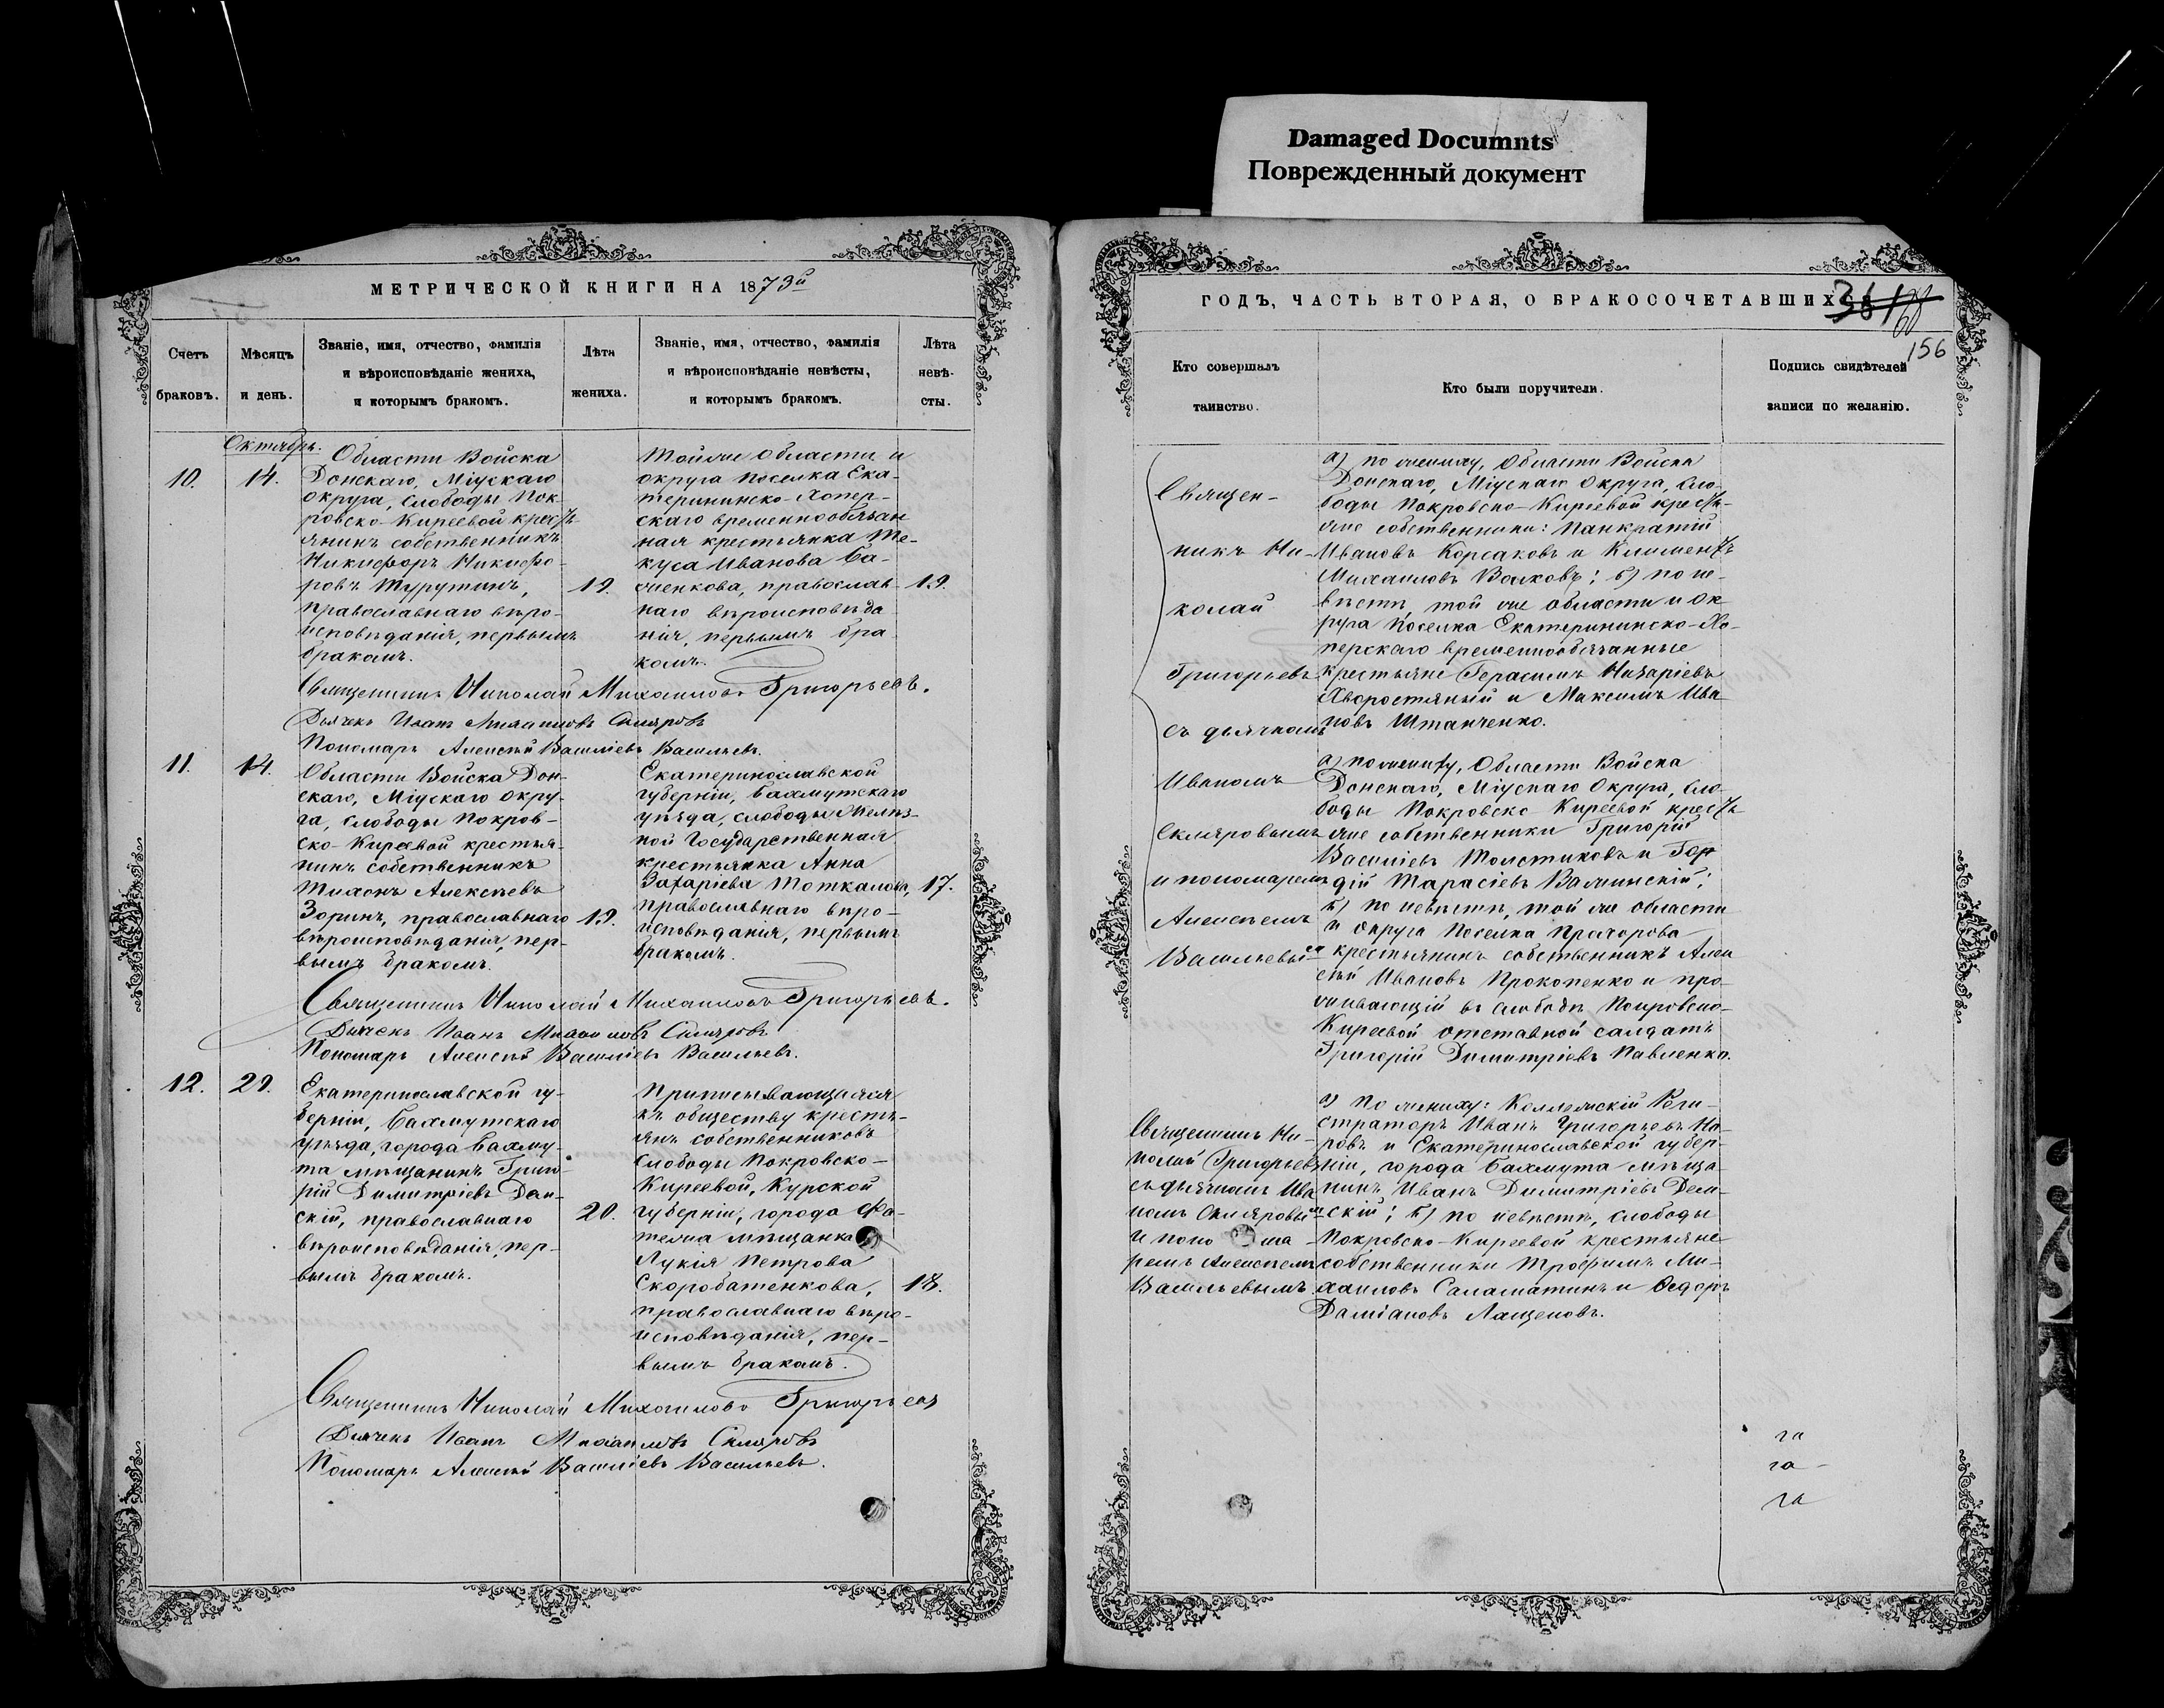 Damaged Documnts
Поврежденный документ
МЕТРИЧЕСКОЙ КНИГИ НА 1873й
Счетъ браковъ.
Мѣсяцъ и день.
Званіе, имя, отчество, фамилія
и вѣроисповѣданіе жениха,
и которымъ бракомъ.
Лѣта жениха.
Званіе, имя, отчество, фамилія
и вѣроисповѣданіе невѣсты,
и которымъ бракомъ.
Лѣта невѣ-
сты.
Октябрь.
10.
14.
Области Войска
Донскаго, Міускаго
округа, слободы Пок-
ровско-Киреевой кресть
янинъ собственникъ
Никифоръ Никифо-
ровъ Турутинъ,
православнаго вѣро-
исповѣданія, первымъ
бракомъ.
19.
Тойже области и
округа поселка Ека-
терининско-Хопер-
скаго временнообязан
ная крестьянка Те-
куса Иванова Ба-
женкова, православ-
наго вѣроисповѣда
нія, первымъ бра-
комъ.
19.
Священникъ Николай Михаиловъ Григорьевъ.
Дьячекъ Иванъ Михаиловъ Скляровъ
Пономарь Алексѣй Василіевъ Васильевъ.
11.
14.
Области Войска Дон-
скаго, Міускаго окру-
га, слободы Покров-
ско-Киреевой крестья-
нинъ собственникъ
Тихонъ Алексѣевъ
Зоринъ, православнаго
вѣроисповѣданія, пер-
вымъ бракомъ.
19.
Екатеринославской
губерніи, Бахмутскаго
уѣзда, слободы Желѣз-
ной Государственная
крестьянка Анна
Захаріева Тоткалова,
православнаго вѣро-
исповѣданія, первымъ
бракомъ.
17.
Священникъ Николай Михаиловъ Григорьевъ.
Дьячекъ Иванъ Михаиловъ Скляровъ
Пономарь Алексѣй Василіевъ Васильевъ.
12.
29.
Екатеринославской гу-
берніи, Бахмутскаго
уѣзда, города Бахму-
та мѣщанинъ Григо-
рій Димитріевъ Дем-
скій, православнаго
вѣроисповѣданія, пер-
вымъ бракомъ.
20.
Приписывающаяся
къ обществу кресть-
янъ собственниковъ
слободы Покровско-
Киреевой, Курской
губерніи, города Фа-
тежа мѣщанка
Лукія Петрова
Скоробатенкова,
православнаго вѣро-
исповѣданія, пер-
вымъ бракомъ.
18.
Священникъ Николай Михаиловъ Григорьевъ
Дьячекъ Иванъ Михаиловъ Скляровъ
Пономарь Алексѣй Василіевъ Васильевъ.
ГОДЪ, ЧАСТЬ ВТОРАЯ, О БРАКОСОЧЕТАВШИХ
156
Кто совершалъ
таинство.
Кто были поручители.
Подпись свидѣтелей
записи по желанію.
Священ-
никъ Ни-
колай
Григорьевъ
съ дьячкомъ
Иваномъ
Скляровымъ
и пономаремъ
Алексѣемъ
Васильевымъ
а) по жениху, Области Войска
Донскаго, Міускаго Округа, сло-
боды Покровско-Киреевой кресть-
яне собственники: Панкратій
Ивановъ Корсаковъ и Климентъ
Михаиловъ Волковъ; б) по не-
вѣстѣ, той же области и ок
руга поселка Екатерининско-Хо-
перскаго временнообязанные
крестьяне Герасимъ Назаріевъ
Хворостяный и Максимъ Ива
новъ Штанченко.
а) по жениху, Области Войска
Донскаго, Міускаго Округа, сло-
боды Покровско Киреевой кресть
яне собственники Григорій
Василіевъ Толстиковъ и Гор
дій Тарасіевъ Валинскій;
б) по невѣстѣ, той же области
и округа поселка Прохорова
крестьянинъ собственникъ Алек
сѣй Ивановъ Прокопенко и про-
живающій въ слободѣ Покровско-
Киреевой отставной салдатъ
Григорій Димитріевъ Павленко.
Священникъ Ни-
колай Григорьевъ
съ дьячкомъ Ива
номъ Скляровымъ
и поно ма-
ремъ Алексѣемъ
Васильевымъ.
а) по жениху: Коллежскій Реги-
страторъ Иванъ Григорьевъ Но-
ровъ и Екатеринославской губер-
ніи, города Бахмута мѣща-
нинъ Иванъ Димитріевъ Дем-
скій; б) по невѣстѣ, слободы
Покровско-Киреевой крестьяне
собственники Трофимъ Ми-
хаиловъ Саламатинъ и Ѳедоръ
Даміановъ Лащеновъ.
га
га
га